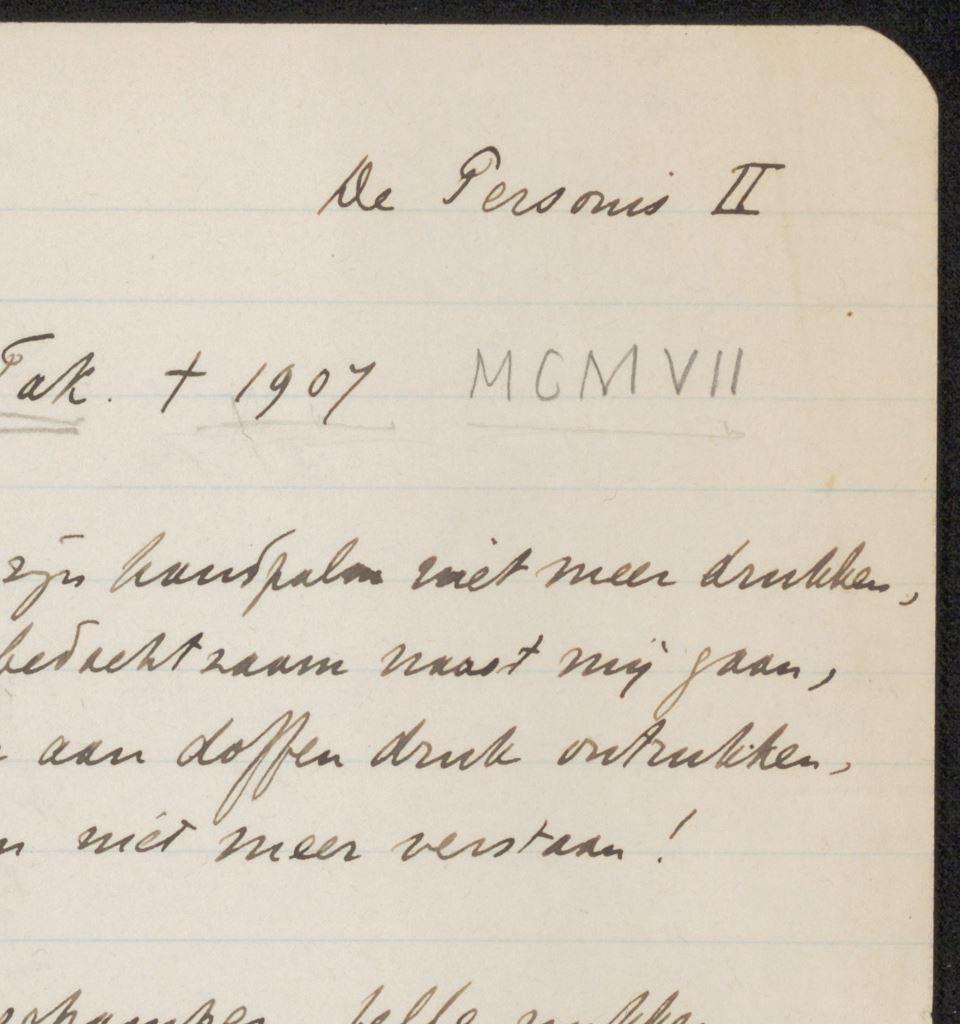 De Personis II
Tak. † 1907 MCMVII
zijn handpalm niet meer drukken,
bedachtzaam naast mij gaan,
aan doffen druk ontrukken,
niet meer verstaan!
felle rukken